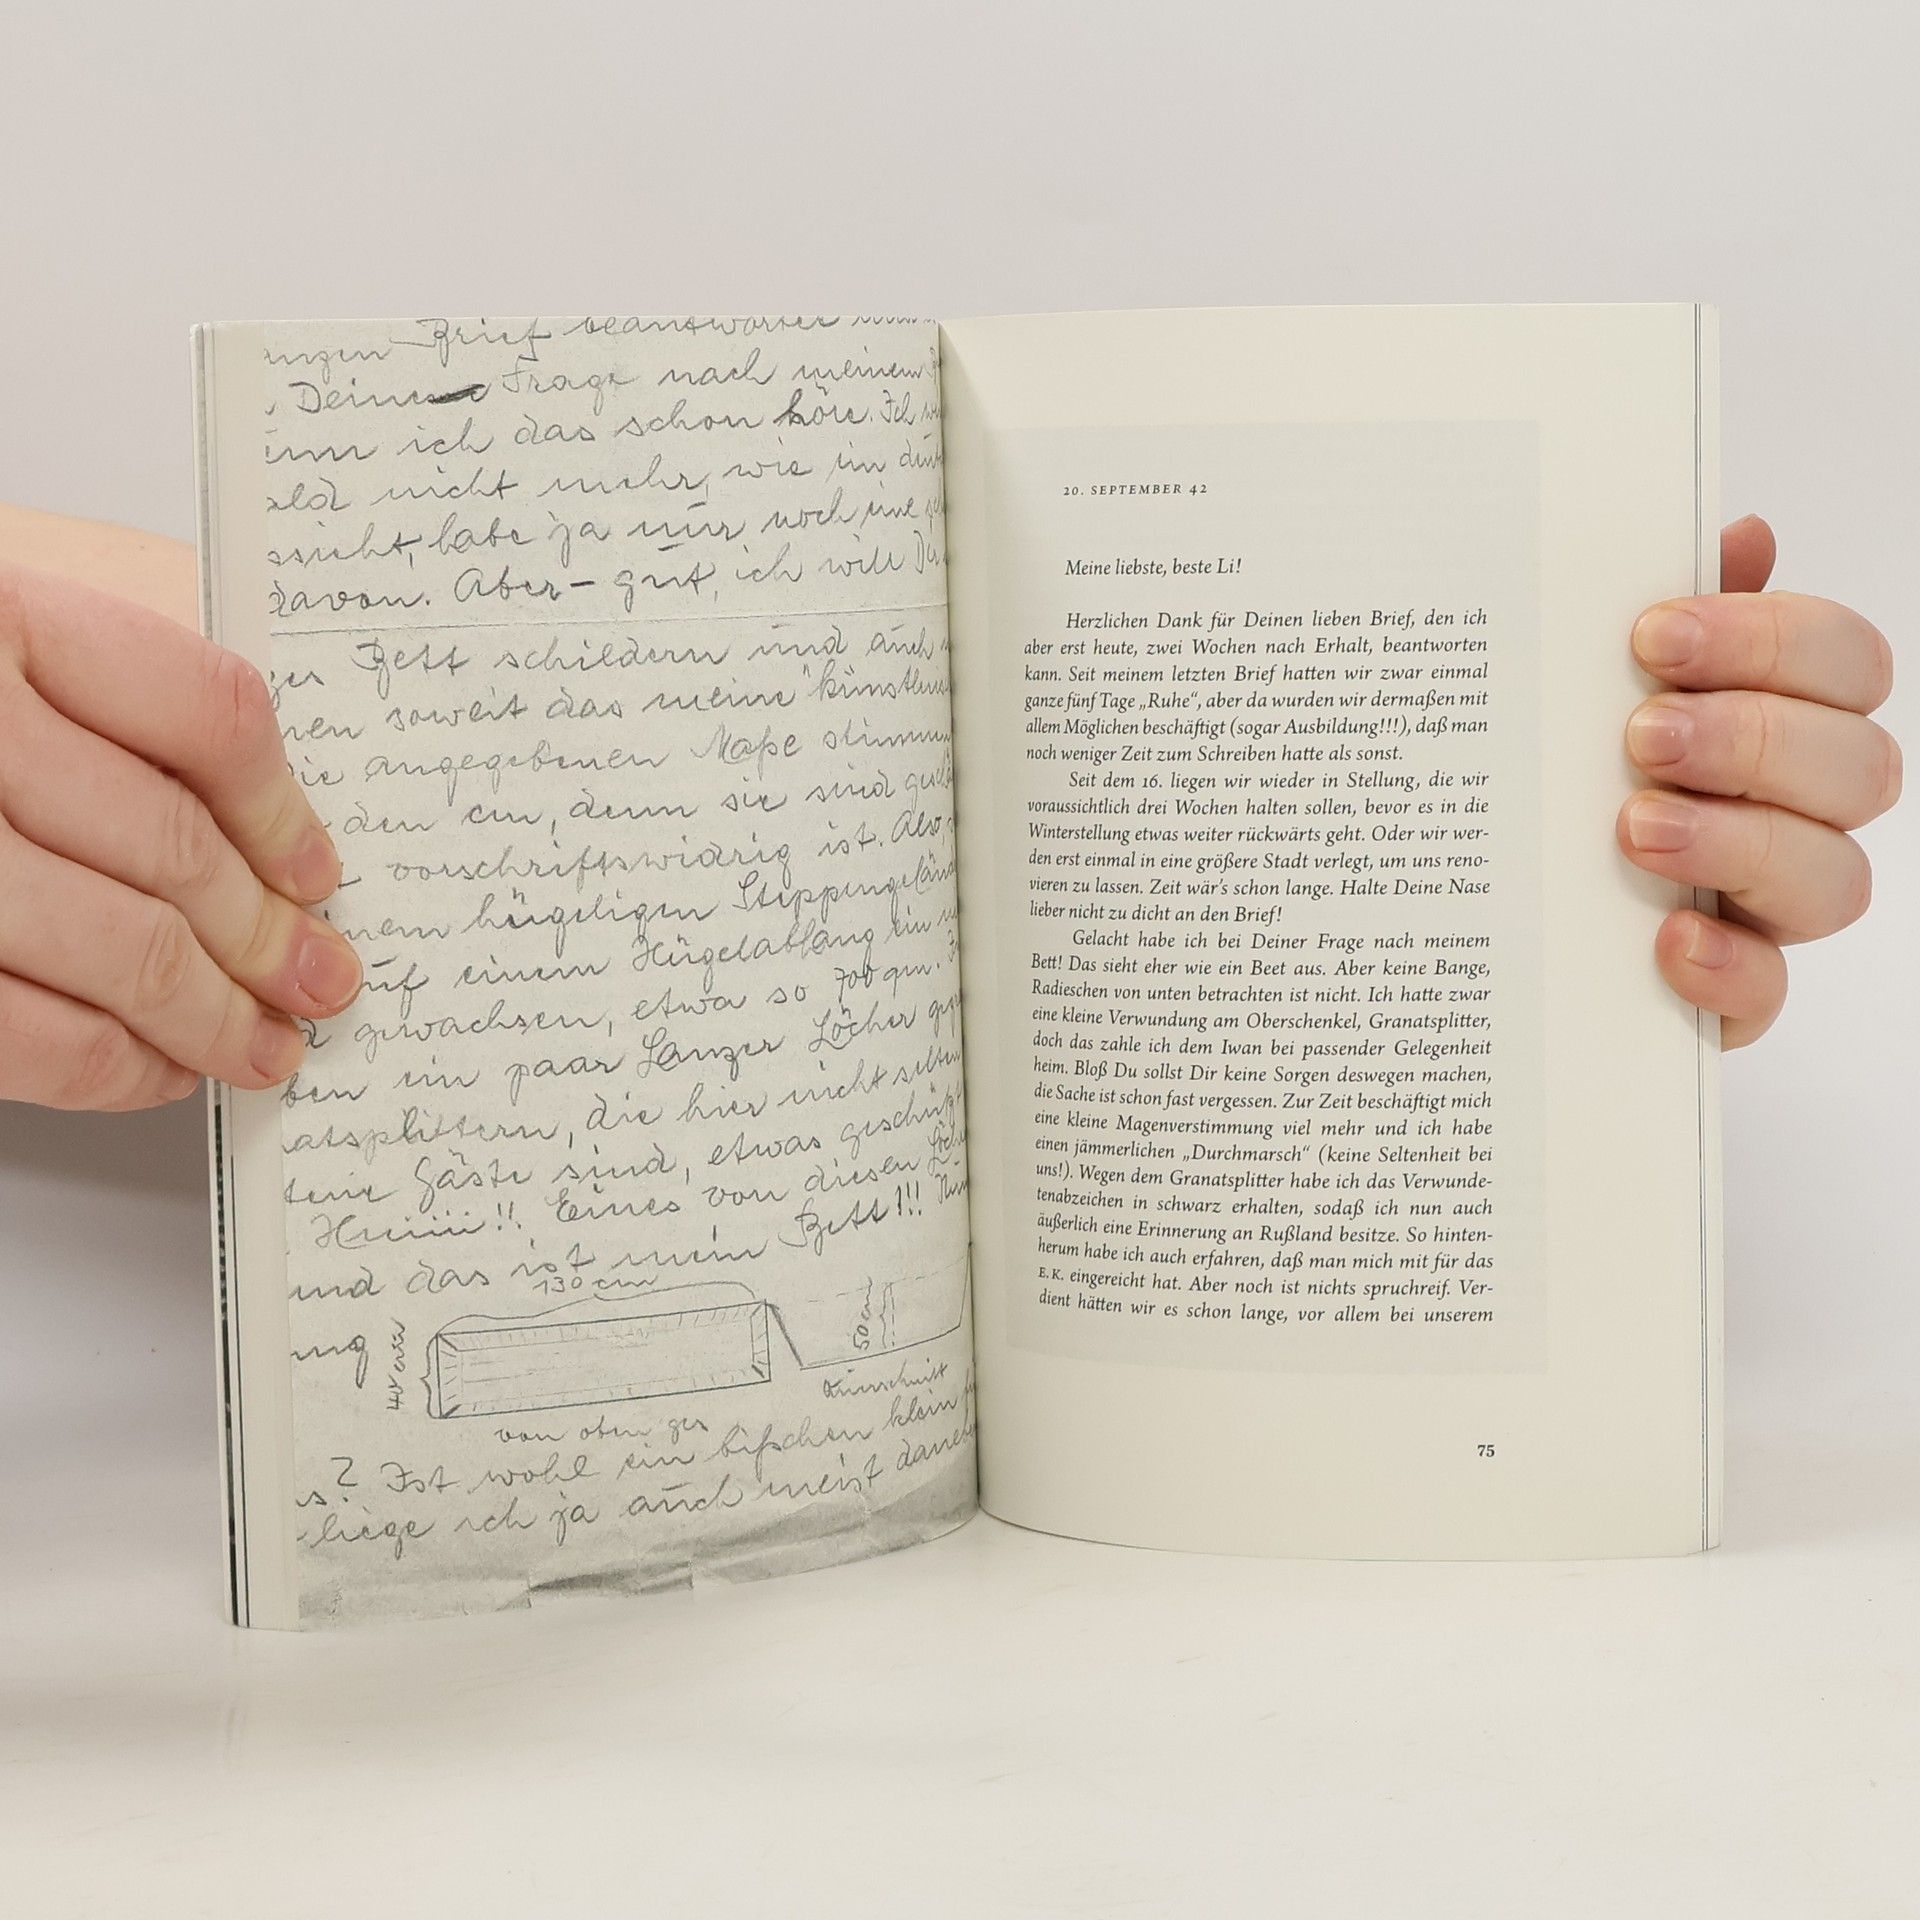 Brief beantworten
Deine Frage nach meinem
ich das schon höre. Ich
nicht mehr, wie im
habe ja nur noch eine
davon. Aber – gut, ich will Dir
Bett schildern und auch
soweit das meine "künstleris
die angegebenen Maße stimmen
den cm, denn sie sind
vorschriftswidrig ist. Also,
hügeligen Steppengelän
auf einem Hügelabhang ein
gewachsen, etwa so 700 qm.
ben ein paar Lanzer Löcher
atsplittern, die hier nicht selten
tene Gäste sind, etwas geschützt
Huiiii!! Eines von diesen Löch
und das ist mein Bett!!!
130 cm
ung
40 cm
50 cm
Querschnitt
von oben ges
s? Ist wohl ein bißchen klein
liege ich ja auch meist daneb
20. SEPTEMBER 42
Meine liebste, beste Li!
Herzlichen Dank für Deinen lieben Brief, den ich
aber erst heute, zwei Wochen nach Erhalt, beantworten
kann. Seit meinem letzten Brief hatten wir zwar einmal
ganze fünf Tage „Ruhe“, aber da wurden wir dermaßen mit
allem Möglichen beschäftigt (sogar Ausbildung!!!), daß man
noch weniger Zeit zum Schreiben hatte als sonst.
Seit dem 16. liegen wir wieder in Stellung, die wir
voraussichtlich drei Wochen halten sollen, bevor es in die
Winterstellung etwas weiter rückwärts geht. Oder wir wer-
den erst einmal in eine größere Stadt verlegt, um uns reno-
vieren zu lassen. Zeit wär’s schon lange. Halte Deine Nase
lieber nicht zu dicht an den Brief!
Gelacht habe ich bei Deiner Frage nach meinem
Bett! Das sieht eher wie ein Beet aus. Aber keine Bange,
Radieschen von unten betrachten ist nicht. Ich hatte zwar
eine kleine Verwundung am Oberschenkel, Granatsplitter,
doch das zahle ich dem Iwan bei passender Gelegenheit
heim. Bloß Du sollst Dir keine Sorgen deswegen machen,
die Sache ist schon fast vergessen. Zur Zeit beschäftigt mich
eine kleine Magenverstimmung viel mehr und ich habe
einen jämmerlichen „Durchmarsch“ (keine Seltenheit bei
uns!). Wegen dem Granatsplitter habe ich das Verwunde-
tenabzeichen in schwarz erhalten, sodaß ich nun auch
äußerlich eine Erinnerung an Rußland besitze. So hinten-
herum habe ich auch erfahren, daß man mich mit für das
E.K. eingereicht hat. Aber noch ist nichts spruchreif. Ver-
dient hätten wir es schon lange, vor allem bei unserem
75